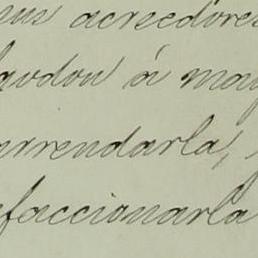 sus acreedores
á may
arrendarla,
efaccionarla